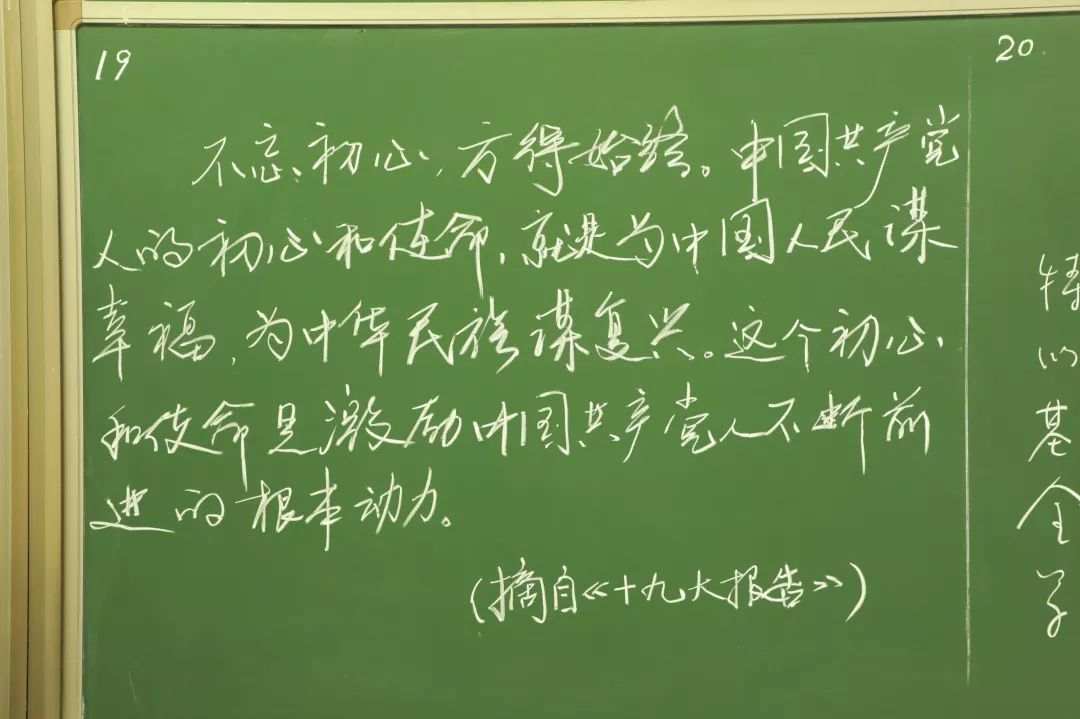 19
不忘初心,方得始终。中国共产党
人的初心和使命,就是为中国人民谋
幸福,为中华民族谋复兴。这个初心
和使命是激励中国共产党人不断前
进的根本动力。
(摘自《十九大报告》)
20
特
的
基
全
学